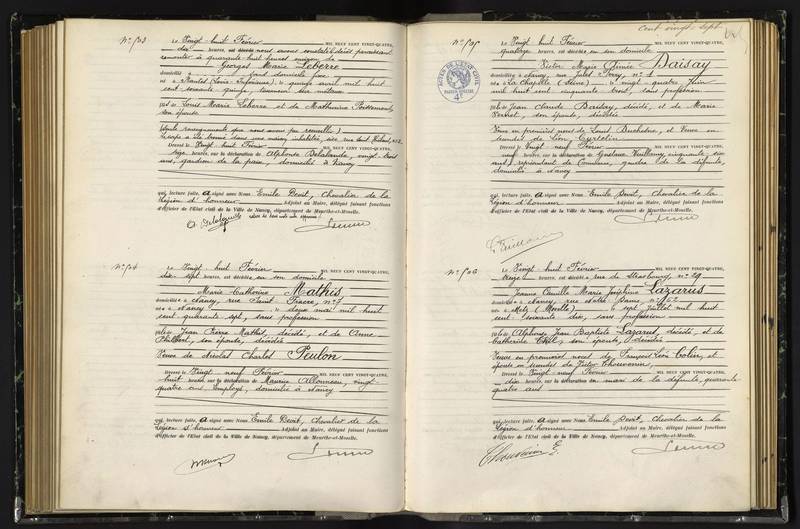 Cent vingt-sept
N° 503
Le Vingt-huit Février MIL NEUF CENT VINGT-QUATRE,
dix heures, est décédé nous avons constaté le décès paraissant
remonter à quarante huit heures environ de
Georges Marie Leberre
domicilié à sans domicile fixe
né à Nantes (Loire-Inférieure) le quinze avril mil huit
cent soixante quinze, tourneur sur métaux
fils de Louis Marie Leberre et de Mathurine
son épouse
(Seuls renseignements que nous avons pu recueillir)
Le corps a été trouvé dans une maison inhabitée, sise rue
Dressé le Vingt-huit Février MIL NEUF CENT VINGT-QUATRE,
heures, sur la déclaration de Alphonse Delalande, vingt-trois
ans, gardien de la paix, domicilié à Nancy
qui, lecture faite, a signé avec Nous Emile Devit, Chevalier de la
Légion d'honneur Adjoint au Maire, délégué faisant fonctions
d'Officier de l'État civil de la Ville de Nancy, département de Meurthe-et-Moselle.
A. Delalande
N° 504
Le Vingt-huit Février MIL NEUF CENT VINGT-QUATRE,
dix-sept heures, est décédée en son domicile
Marie Catherine Mathis
domiciliée à Nancy, rue Saint Fiacre, n° 7
née à Nancy le deux mai mil huit
cent quarante sept, sans profession
fille de Jean Pierre Mathis, décédé, et de Anne
son épouse, décédée
Veuve de Nicolas Charles Peulon
Dressé le Vingt neuf Février MIL NEUF CENT VINGT-QUATRE,
huit heures, sur la déclaration de Maurice Allonneau, vingt-
quatre ans, employé, domicilié à Nancy
qui, lecture faite, a signé avec Nous Emile Devit, Chevalier de la
Légion d'honneur Adjoint au Maire, délégué faisant fonctions
d'Officier de l'État civil de la Ville de Nancy, département de Meurthe-et-Moselle.
N° 505
Le Vingt huit Février MIL NEUF CENT VINGT-QUATRE,
quatorze heures, est décédée en son domicile
Marie Aimée Daisay
domiciliée à Nancy, rue Jules Ferry n° 1
née à La Chapelle le vingt quatre Juin
mil huit cent cinquante huit, sans profession
fille de Jean Claude décédé, et de Marie
son épouse, décédée
Veuve en premières noces de Louis et Veuve en
secondes de Léon
Dressé le Vingt neuf Février MIL NEUF CENT VINGT-QUATRE,
neuf heures, sur la déclaration de Gustave Vuillaumy, cinquante-six
ans, représentant de Commerce, gendre de la défunte,
domicilié à Nancy
qui, lecture faite, a signé avec Nous Emile Devit, Chevalier de la
Légion d'honneur Adjoint au Maire, délégué faisant fonctions
d'Officier de l'État civil de la Ville de Nancy, département de Meurthe-et-Moselle.
N° 506
Le Vingt-huit Février MIL NEUF CENT VINGT-QUATRE,
treize heures, est décédée rue de Strasbourg, n° 29
Jeanne Camille Marie Joséphine Lazarus
domiciliée à Nancy, rue Notre Dame n° 62
née à Metz (Moselle) le sept Juillet mil huit
cent soixante dix, sans profession
fille de Alphonse Jean Baptiste Lazarus, décédé, et de
Catherine son épouse, décédée
Veuve en premières noces de François Léon Colin, et
épouse en secondes de Victor Thouvenin
Dressé le Vingt neuf Février MIL NEUF CENT VINGT-QUATRE,
dix heures, sur la déclaration du mari de la défunte, quarante
quatre ans
qui, lecture faite, a signé avec Nous Emile Devit, Chevalier de la
Légion d'honneur Adjoint au Maire, délégué faisant fonctions
d'Officier de l'État civil de la Ville de Nancy, département de Meurthe-et-Moselle.
Thouvenin E.